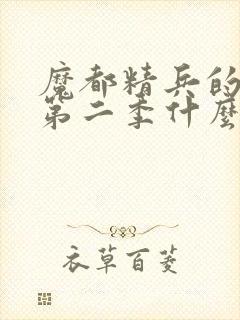 魔都精兵的
第二季什麼
衣草百菱